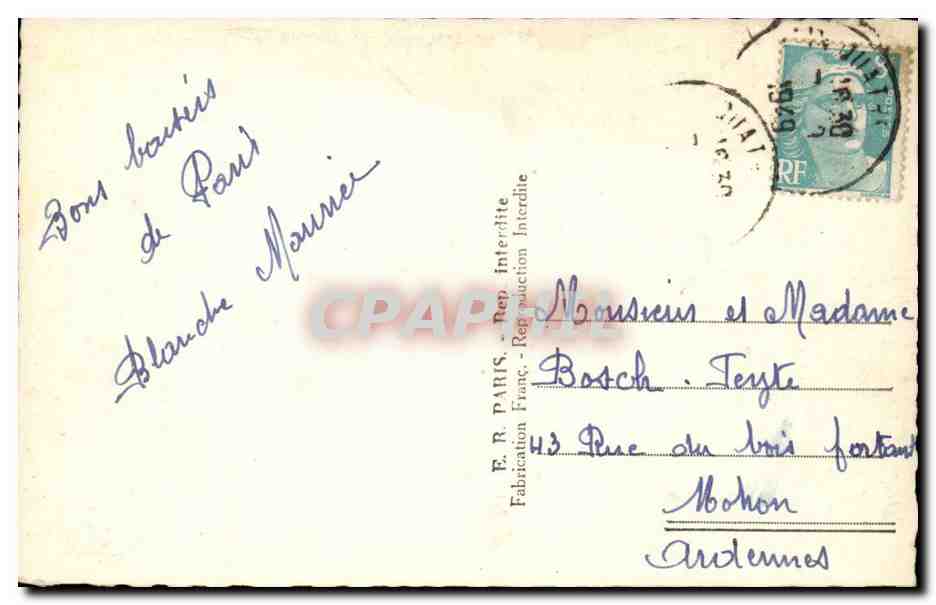 Bons baisers
de Paris
Blanche Maurice
E. R. PARIS. - Rep. interdite
Fabrication Franç. - Reproduction Interdite
CPAPHIL
RF
16 30
1949
Monsieur et Madame
Bosch - Teyte
43 Rue du bois fortant
Mohon
Ardennes